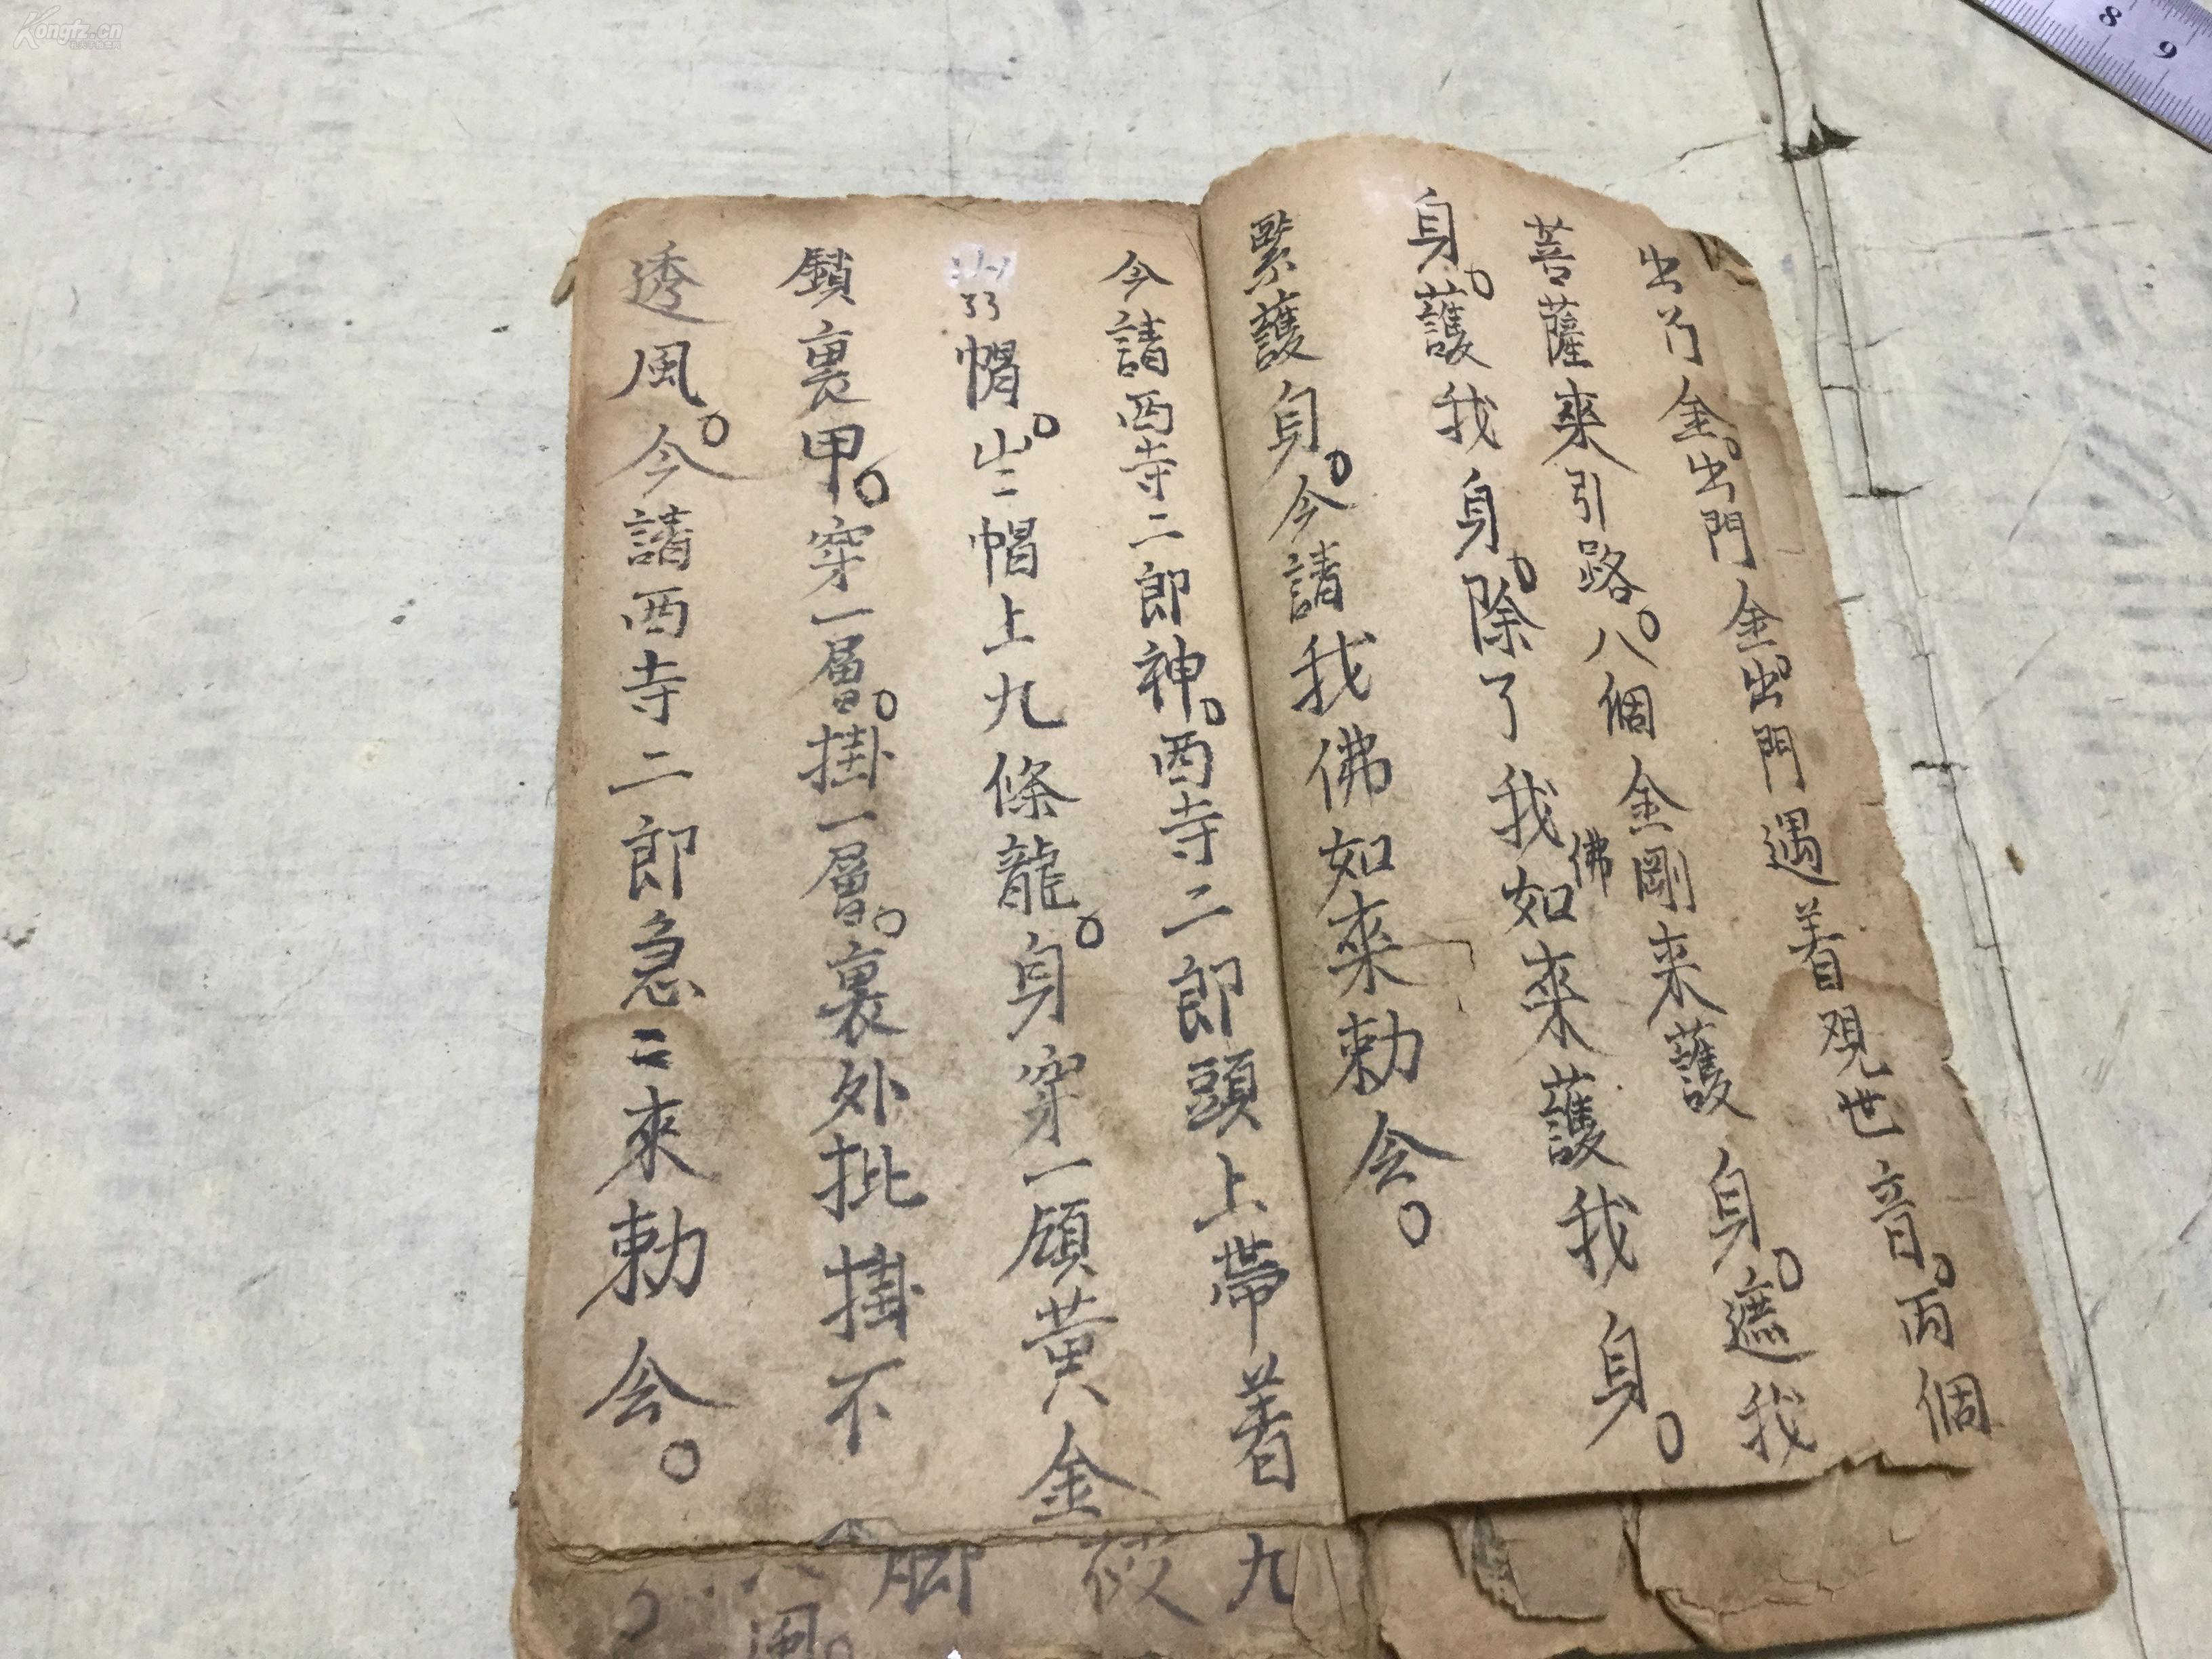 出门金。出門金。出門遇着观世音。两個
菩薩來引路。八個金剛来護身。遮我
身。護我身。除了我佛如來護我身。
緊護身。今請我佛如來勅令。
今請西寺二郎神。西寺二郎頭上帶着
帽。山二帽上九條龍。身穿一頎黄金
鎖裏甲。穿一層。掛一層。裏外批掛不
透風。今請西寺二郎急二來勅令。
九
脚
風。
Kongfz.cn
8 9